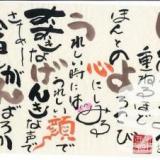 重ねるほど
ほんとのよろこび
心にしみる
うれしい時には
うれしい顔で
げんきな声で
がんばろうか